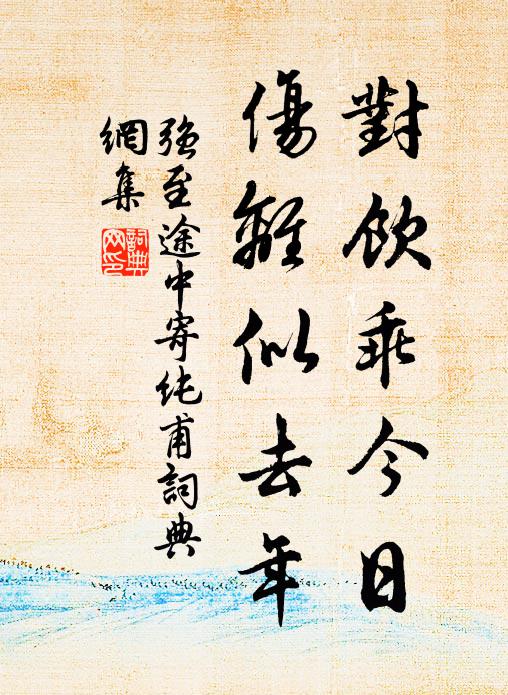 對飲乖今日
傷離似去年
強至途中寄純甫詞典
網集
詞典
网印